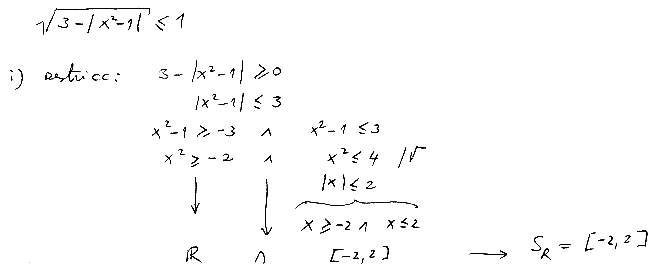 √3-|x²-1| ≤ 1
i) restricc: 3-|x²-1| ≥ 0
|x²-1| ≤ 3
x²-1 ≥ -3 ∧ x²-1 ≤ 3
x² ≥ -2 ∧ x² ≤ 4 /√
|x| ≤ 2
x ≥ -2 ∧ x ≤ 2
ℝ ∧ [-2,2] → S_R = [-2,2]